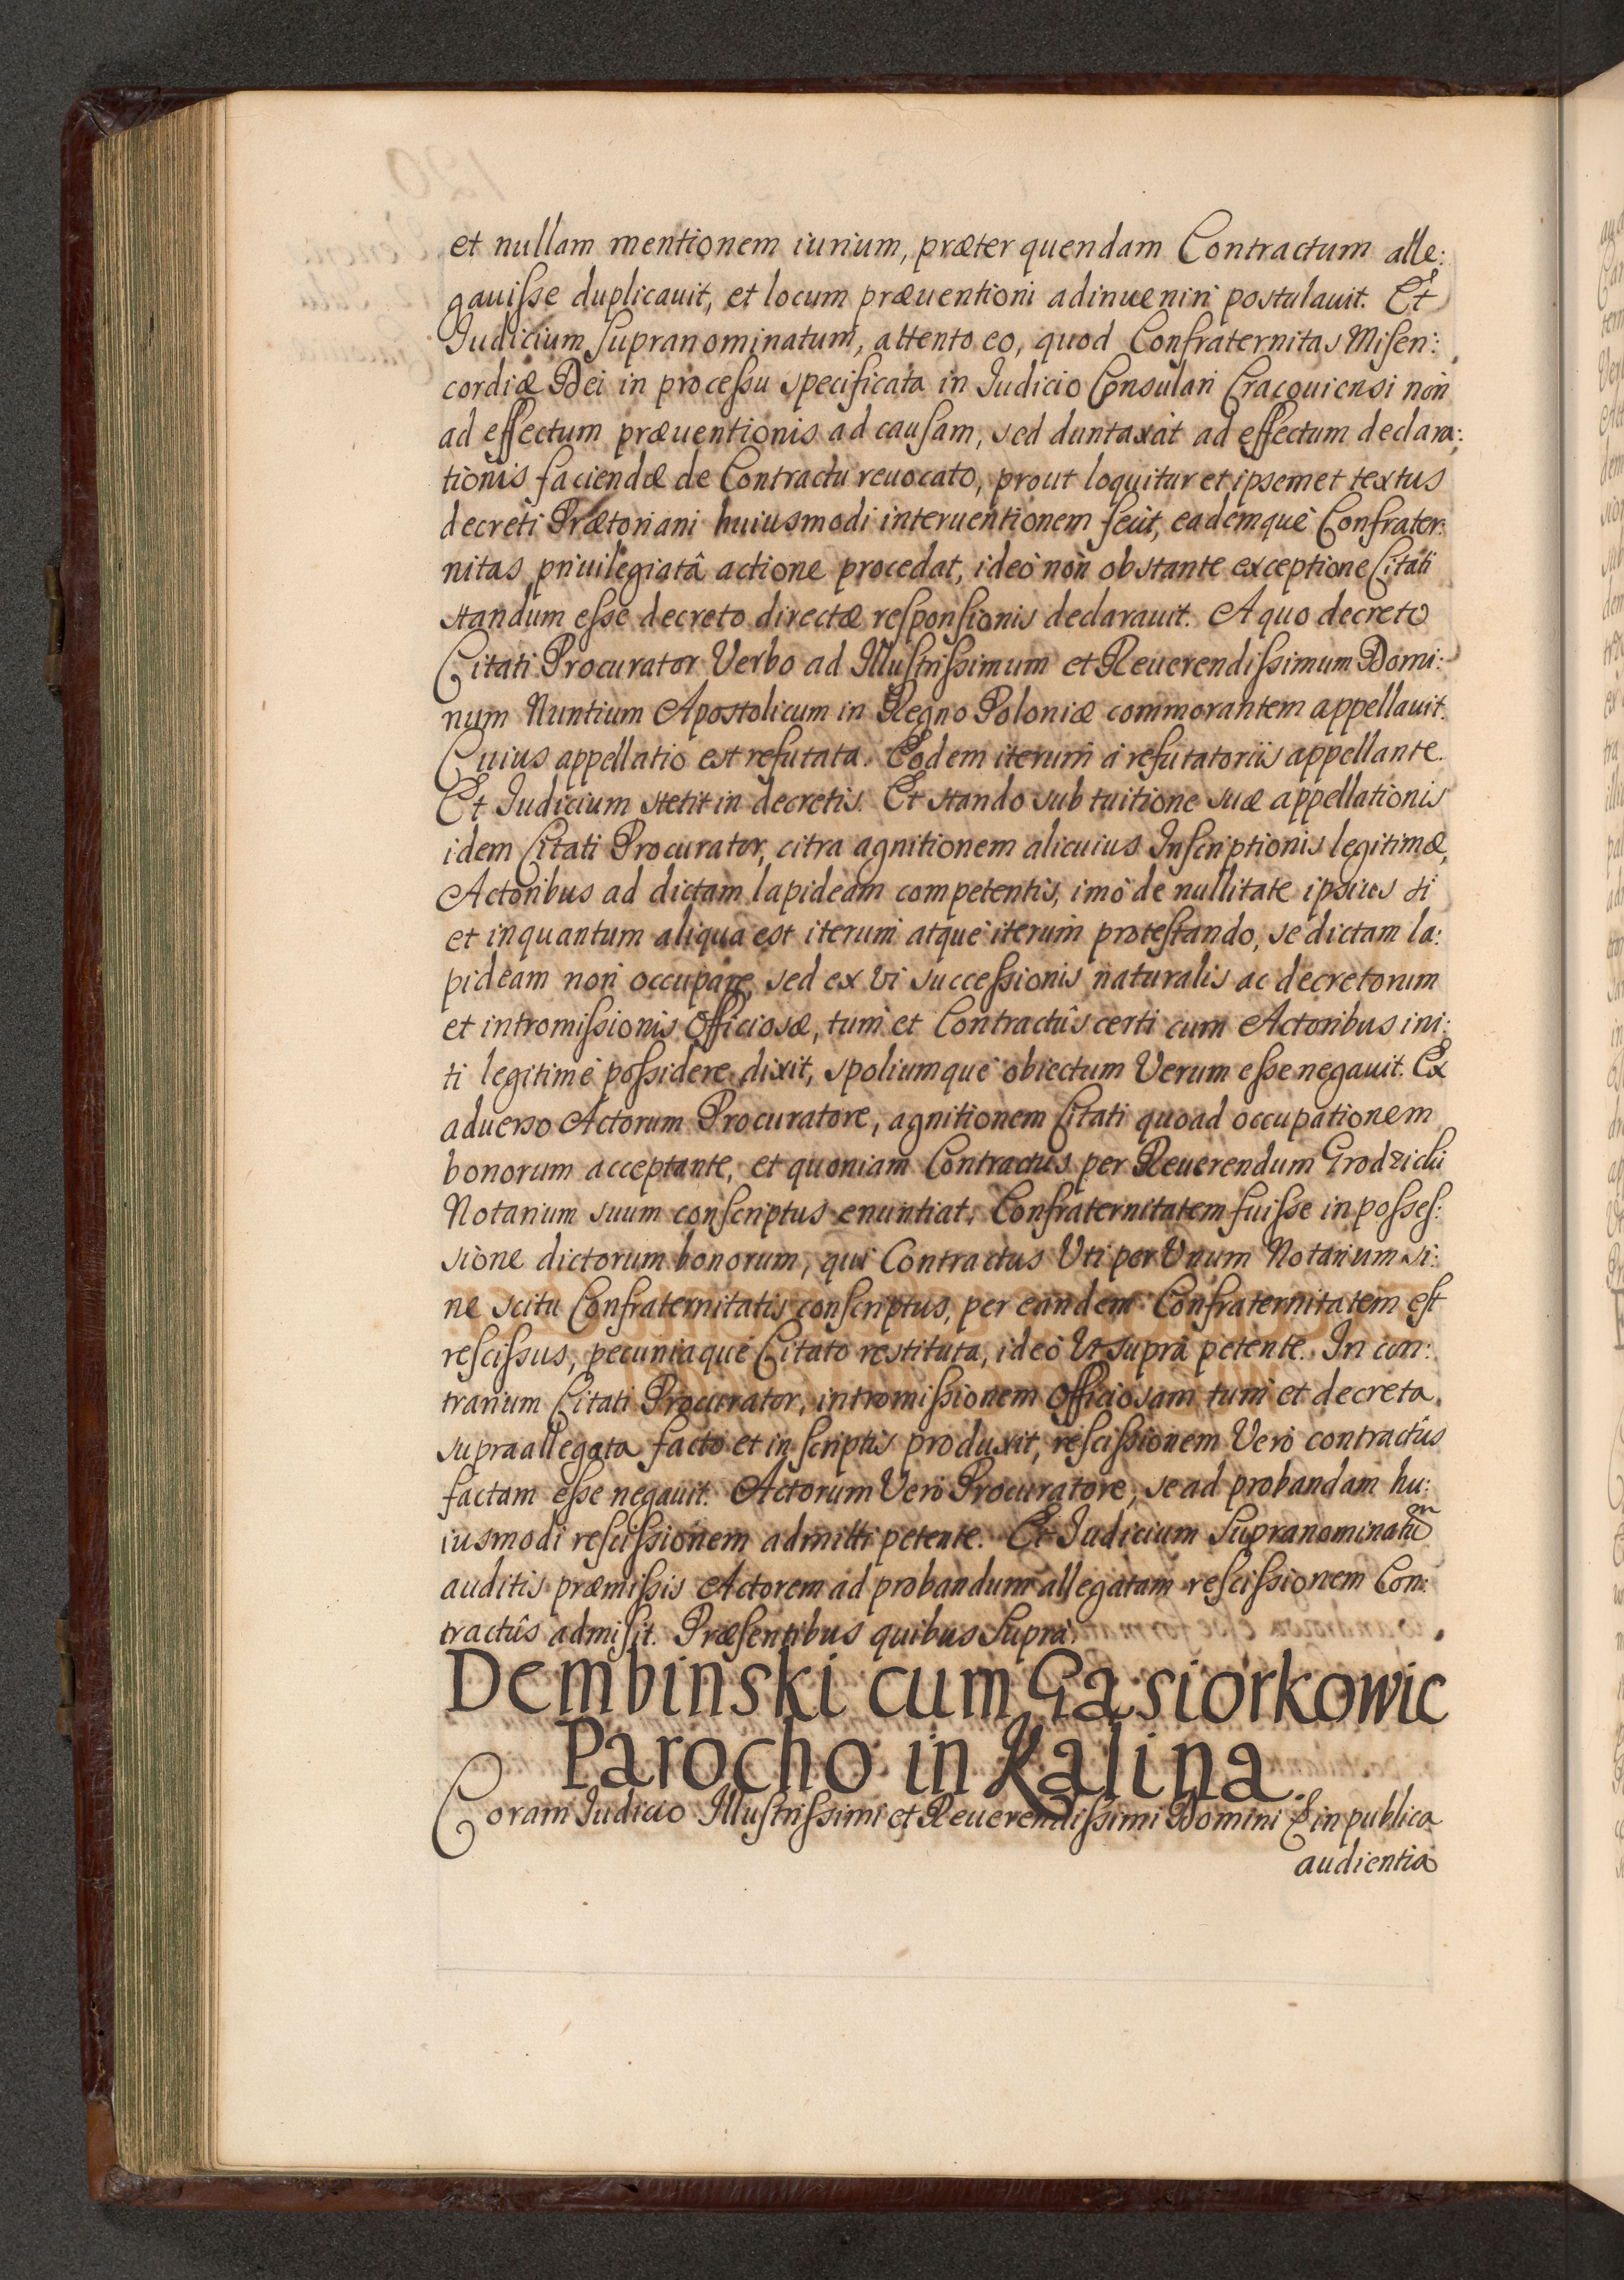 et nullam mentionem iurium, præter quendam Contractum alle:
gauiſse duplicauit, et locum præuentioni adinueniri postulauit. Et
Iudicium ſupranominatum, attento eo, quod Confraternitas Miſeri:
cordiæ Dei in proceſsu specificata in Iudicio Consulari Cracouiensi non
ad effectum præuentionis ad cauſam, sed duntaxat ad effectum declara:
tionis faciendæ de Contractu reuocato, prout loquitur et ipsemet textus
decreti Prætoriani huiusmodi interuentionem fecit, eademquè Confrater:
nitas priuilegiatâ actione procedat, ideò non obstante exceptione Citati
standum eſse decreto directæ reſponſionis declarauit. A quo decreto
Citati Procurator Verbo ad Illuſtriſsimum et Reuerendiſsimum Domi:
num Nuntium Apostolicum in Regno Poloniæ commorantem appellauit.
Cuius appellatio est refutata. Eodem iterum à refutatoriis appellante.
Et Iudicium stetit in decretis. Et stando sub tuitione suæ appellationis
idem Citati Procurator, citra agnitionem alicuius Inſcriptionis legitimæ,
Actoribus ad dictam lapideam competentis, imò de nullitate ipsius si
et inquantum aliqua est iterum atquè iterum proteſtando, se dictam la:
pideam non occupare, sed ex vi succeſsionis naturalis ac decretorum
et intromiſsionis Officiosæ, tum et Contractûs certi cum Actoribus ini:
ti legitimè poſsidere dixit, spoliumquè obiectum Verum eſse negauit. Ex
aduerso Actorum Procuratore, agnitionem Citati quoad occupationem
bonorum acceptante, et quoniam Contractus per Reuerendum Grodzicki
Notarium suum conſcriptus enuntiat, Confraternitatem fuiſse in poſseſ:
sione dictorum bonorum, qui Contractus Vti per Vnum Notarium si:
ne scitu Confraternitatis conſcriptus, per eandem Confraternitatem eſt
reſciſsus, pecuniaquè Citato restituta, ideò Vt suprà petente. In con:
trarium Citati Procurator, intromiſsionem Officiosam tum et decreta
supraallegata facto et in ſcriptis produxit, reſciſsionem Verò contractûs
factam eſse negauit. Actorum Verò Procuratore, se ad probandam hu:
iusmodi reſciſsionem admitti petente. Et Iudicium Supranominatũm
auditis præmiſsis Actorem ad probandum allegatam reſciſsionem Con:
tractûs admiſit. Præſentibus quibus Suprà.
Dembinski cum Gasiorkowic
Parocho in Kalina.
Coram Iudicio Illuſtriſsimi et Reuerendiſsimi Domini E in publica
audientia